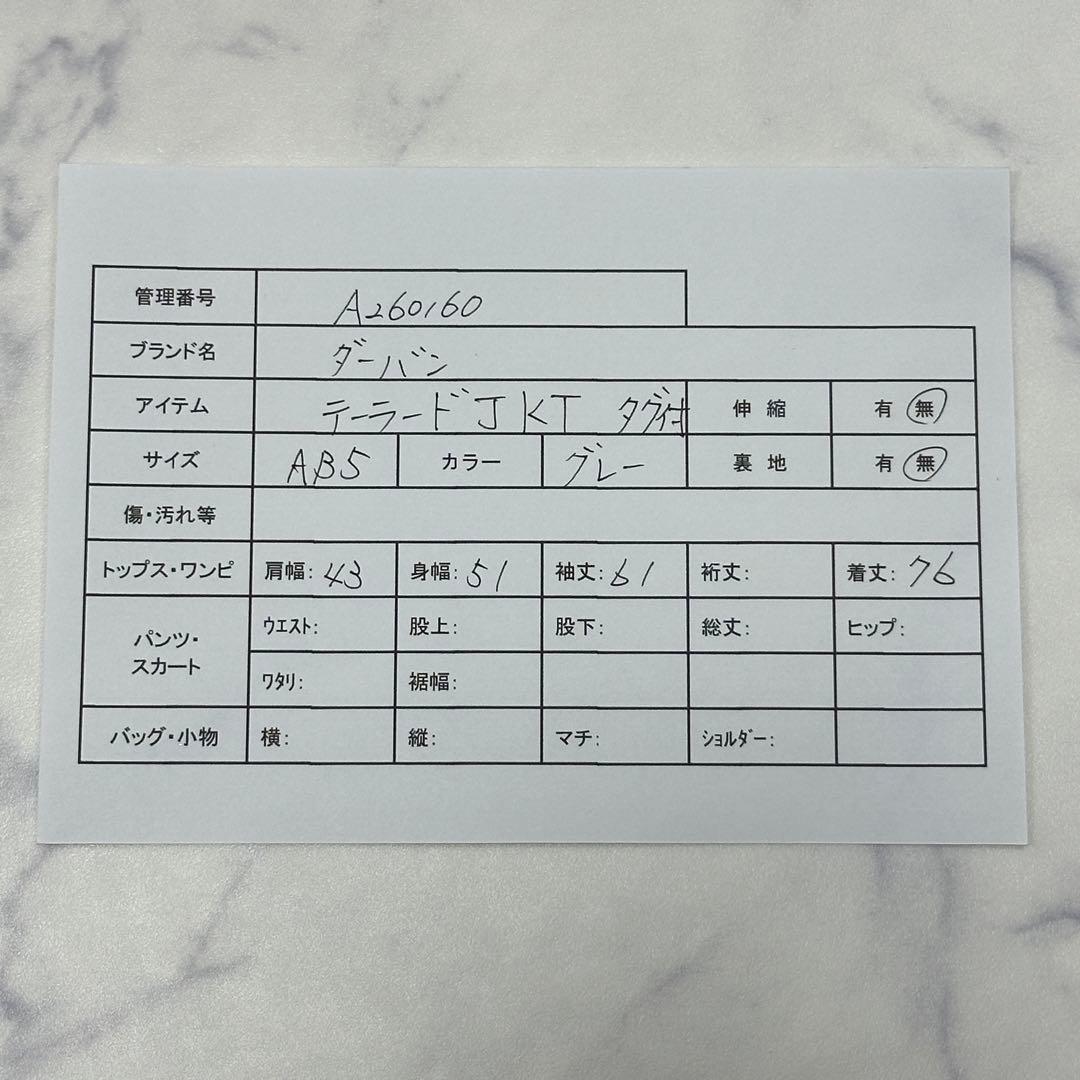 管理番号 A260160
ブランド名 ダーバン
アイテム テーラードJKT タグ付 伸縮 有 無
サイズ AB5 カラー グレー 裏地 有 無
傷・汚れ等
トップス・ワンピ 肩幅: 43 身幅: 51 袖丈: 61 裄丈: 着丈: 76
パンツ・スカート ウエスト: 股上: 股下: 総丈: ヒップ:
ワタリ: 裾幅:
バッグ・小物 横: 縦: マチ: ショルダー: